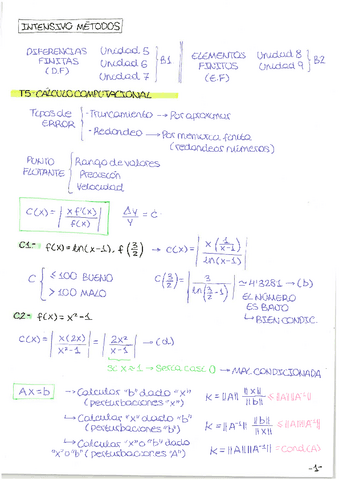 INTENSIVO MÉTODOS
DIFERENCIAS FINITAS (D.F) { Unidad 5 Unidad 6 Unidad 7 } B1
ELEMENTOS FINITOS (E.F) { Unidad 8 Unidad 9 } B2
T5-CÁLCULO COMPUTACIONAL
Tipos de ERROR { - Truncamiento → Por aproximar
- Redondeo → Por memoria finita
(redondear números)
PUNTO FLOTANTE { Rango de valores
Precisión
Velocidad
C(x) = | x f'(x) / f(x) | Δy / y = C
C1 → f(x) = ln(x-1), f(3/2) → C(x) = | x (1/(x-1)) / ln(x-1) |
C { ≤ 100 BUENO
> 100 MALO
C(3/2) = | 3 / ln(3/2 - 1) | ≃ 4'3281 → (b)
EL NÚMERO
ES BAJO
↳ BIEN CONDIC.
C2 → f(x) = x² - 1
C(x) = | x(2x) / x² - 1 | = | 2x² / x - 1 | → (d)
→ MAL CONDICIONADA
Ax = b
→ Calcular "b" dado "x"
(perturbaciones "x")
K = ||A|| ||x|| / ||b|| ≤ ||A|| ||A⁻¹||
→ Calcular "x" dado "b"
(perturbaciones "b")
K = ||A⁻¹|| ||b|| / ||x|| ≤ ||A|| ||A⁻¹||
→ Calcular "x" o "b" dado
"x" o "b" (perturbaciones "A")
K = ||A|| ||A⁻¹|| = Cond(A)
-1-